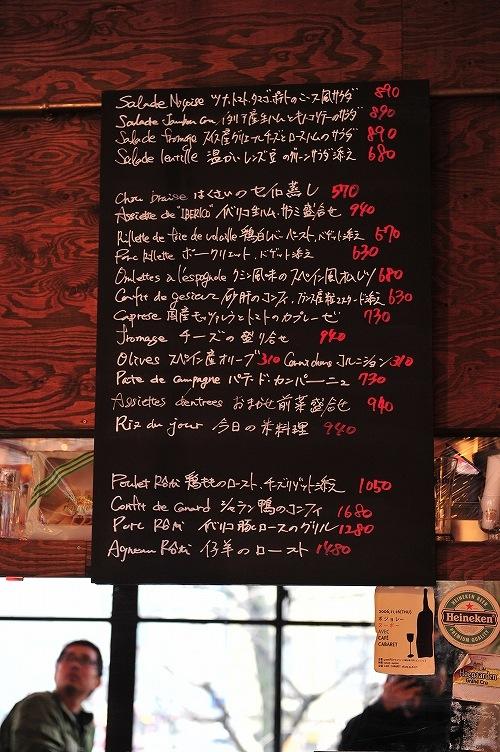 Salade Niçoise ツナ、トマト、タマゴ、ポテトのニース風サラダ 890
Salade Jambon Cru イタリア産生ハムとキノコソテーのサラダ 890
Salade fromage スイス産グリエールチーズとロースハムのサラダ 890
Salade lentille 温かいレンズ豆のグリーンサラダ添え 680
Chou braise はくさいのセイロ蒸し 570
Assiette de "IBERICO" イベリコ生ハム、サラミ盛合せ 940
Rillette de foie de volaille 鶏白レバーペースト、バゲット添え 570
Porc Rillette ポークリエット、バゲット添え 630
Omlettes à l'espagnole クミン風味のスペイン風オムレツ 680
Confit de gesier 砂肝のコンフィ、フランス産粒マスタード添え 630
Caprese 国産モッツァレラとトマトのカプレーゼ 730
fromage チーズの盛り合せ 940
Olives スペイン産オリーブ 310 Cornichons コルニション 310
Pate de campagne パテ・ド・カンパーニュ 730
Assiettes d'entrees おまかせ前菜盛合せ 940
Riz du jour 今日の米料理 940
Poulet Rôti 鶏もものロースト、チーズリゾット添え 1050
Confit de Canard シャラン鴨のコンフィ 1680
Porc Rôti イベリコ豚ロースのグリル 1280
Agneau Rôti 仔羊のロースト 1480
2006.11.16(THU)
ボジョレー
ヌーボー
AVEC
CAFÉ
CABARET
HEINEKEN BEER
Heineken
PREMIUM QUALITY
Hoegaarden
Grand Cru